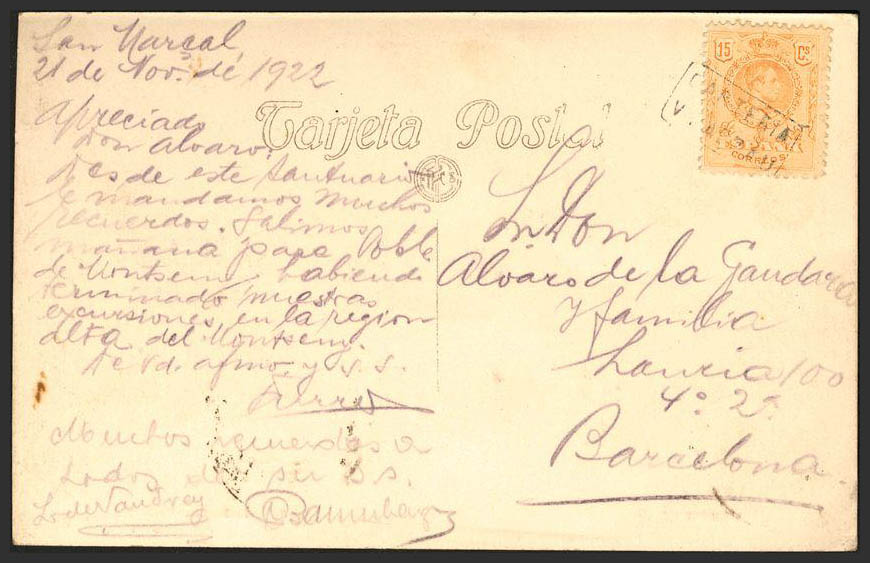 San Marçal
21 de Nov. de 1922
Apreciado
Don Alvaro:
Desde este Santuario
le mandamos muchos
recuerdos. Salimos
mañana para Pobla
de Montseny habiendo
terminado nuestras
excursiones en la region
alta del Montseny.
De Vd. afmo. y s. s.
Muchos recuerdos a
todos de
Tarjeta Postal
15 Cs
CORREOS
CARTERIA
Sr. Don
Alvaro de la Gandara
y familia
Lauria 100
4º 2ª
Barcelona